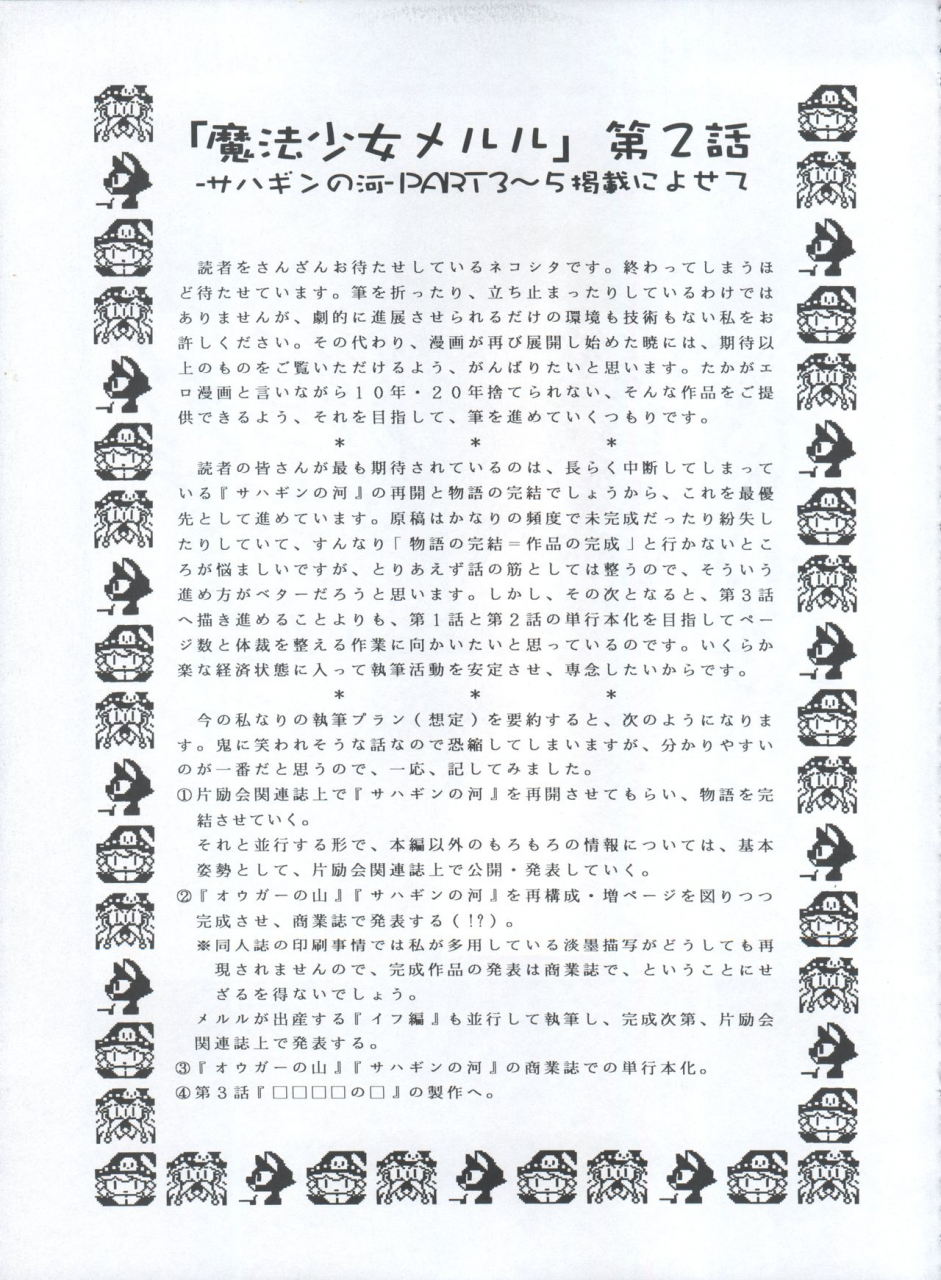 「魔法少女メルル」第2話
-サハギンの河-PART3〜5掲載によせて
読者をさんざんお待たせしているネコシタです。終わってしまうほ
ど待たせています。筆を折ったり、立ち止まったりしているわけでは
ありませんが、劇的に進展させられるだけの環境も技術もない私をお
許しください。その代わり、漫画が再び展開し始めた暁には、期待以
上のものをご覧いただけるよう、がんばりたいと思います。たかがエ
ロ漫画と言いながら10年・20年捨てられない、そんな作品をご提
供できるよう、それを目指して、筆を進めていくつもりです。
＊　＊　＊
読者の皆さんが最も期待されているのは、長らく中断してしまって
いる『サハギンの河』の再開と物語の完結でしょうから、これを最優
先として進めています。原稿はかなりの頻度で未完成だったり紛失し
たりしていて、すんなり「物語の完結＝作品の完成」と行かないとこ
ろが悩ましいですが、とりあえず話の筋としては整うので、そういう
進め方がベターだろうと思います。しかし、その次となると、第3話
へ描き進めることよりも、第1話と第2話の単行本化を目指してペー
ジ数と体裁を整える作業に向かいたいと思っているのです。いくらか
楽な経済状態に入って執筆活動を安定させ、専念したいからです。
＊　＊　＊
今の私なりの執筆プラン(想定)を要約すると、次のようになりま
す。鬼に笑われそうな話なので恐縮してしまいますが、分かりやすい
のが一番だと思うので、一応、記してみました。
①片励会関連誌上で『サハギンの河』を再開させてもらい、物語を完
結させていく。
それと並行する形で、本編以外のもろもろの情報については、基本
姿勢として、片励会関連誌上で公開・発表していく。
②『オウガーの山』『サハギンの河』を再構成・増ページを図りつつ
完成させ、商業誌で発表する(!?)。
※同人誌の印刷事情では私が多用している淡墨描写がどうしても再
現されませんので、完成作品の発表は商業誌で、ということにせ
ざるを得ないでしょう。
メルルが出産する『イフ編』も並行して執筆し、完成次第、片励会
関連誌上で発表する。
③『オウガーの山』『サハギンの河』の商業誌での単行本化。
④第3話『□□□□の□』の製作へ。